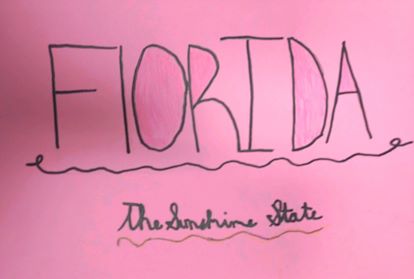 FlORIDA
The Sunshine State